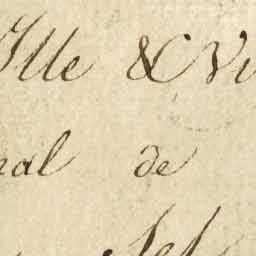 Ille & Vi
al de